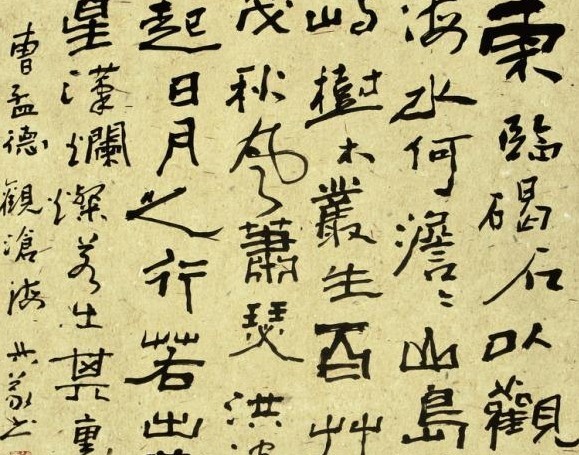 東臨碣石以觀
海水何澹〻山島
峙樹木叢生百艸
茂秋風蕭瑟洪
起日月之行若出
星漢爛燦若出其裏
曹孟德觀滄海